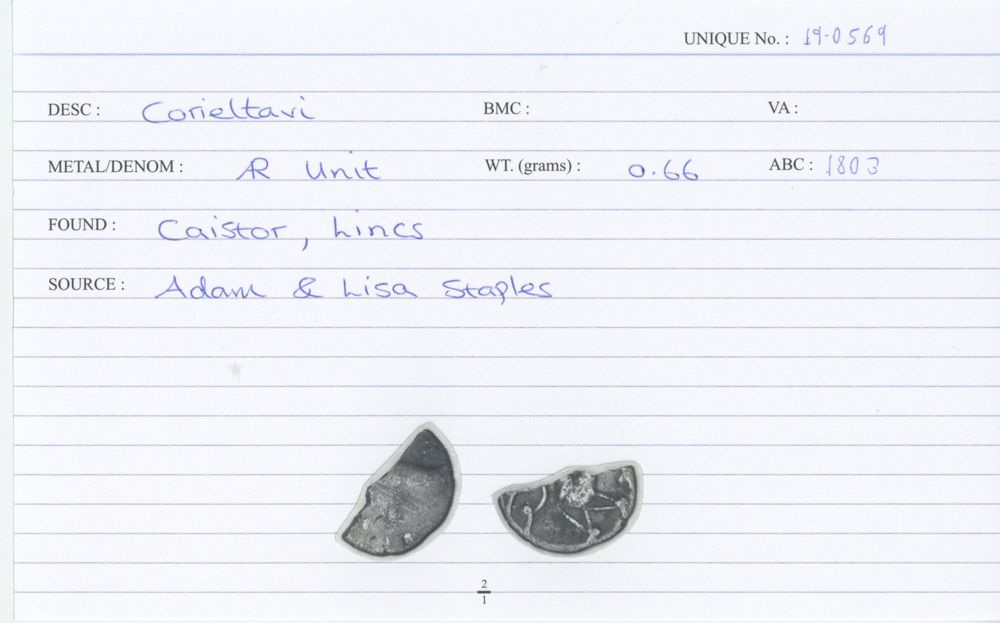 UNIQUE No. : 19-0569
DESC : Corieltavi BMC : VA :
METAL/DENOM : AR Unit WT. (grams) : 0.66 ABC : 1803
FOUND : Caistor, Lincs
SOURCE : Adam & Lisa Staples
2
1